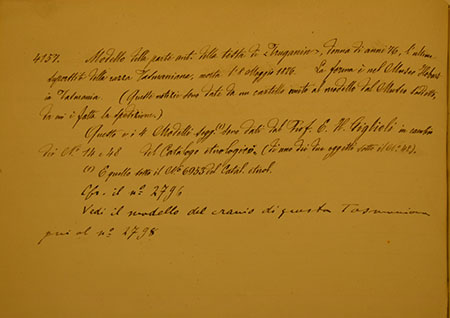 4157. Modello della parte ant. della testa di Truganina, donna di anni 76, l'ultima
superstite della razza Tasmaniana, morta l'8 Maggio 1876. La forma è nel Museo Hobart
in Tasmania. (Queste notizie sono date da un cartello unito al modello dal Museo suddetto,
da cui è fatta la spedizione.)
Questo e i 4 Modelli segg.(1) sono dati dal Prof. E. H. Giglioli in cambio
dei Ni 14 e 48 del Catalogo etnologico. (di uno dei due oggetti sotto il n° 48).
(1) E quello sotto il N° 6935 del Catal. etnol.
Cfr. il n° 2796
Vedi il modello del cranio di questa Tasmaniana
qui al n° 2798